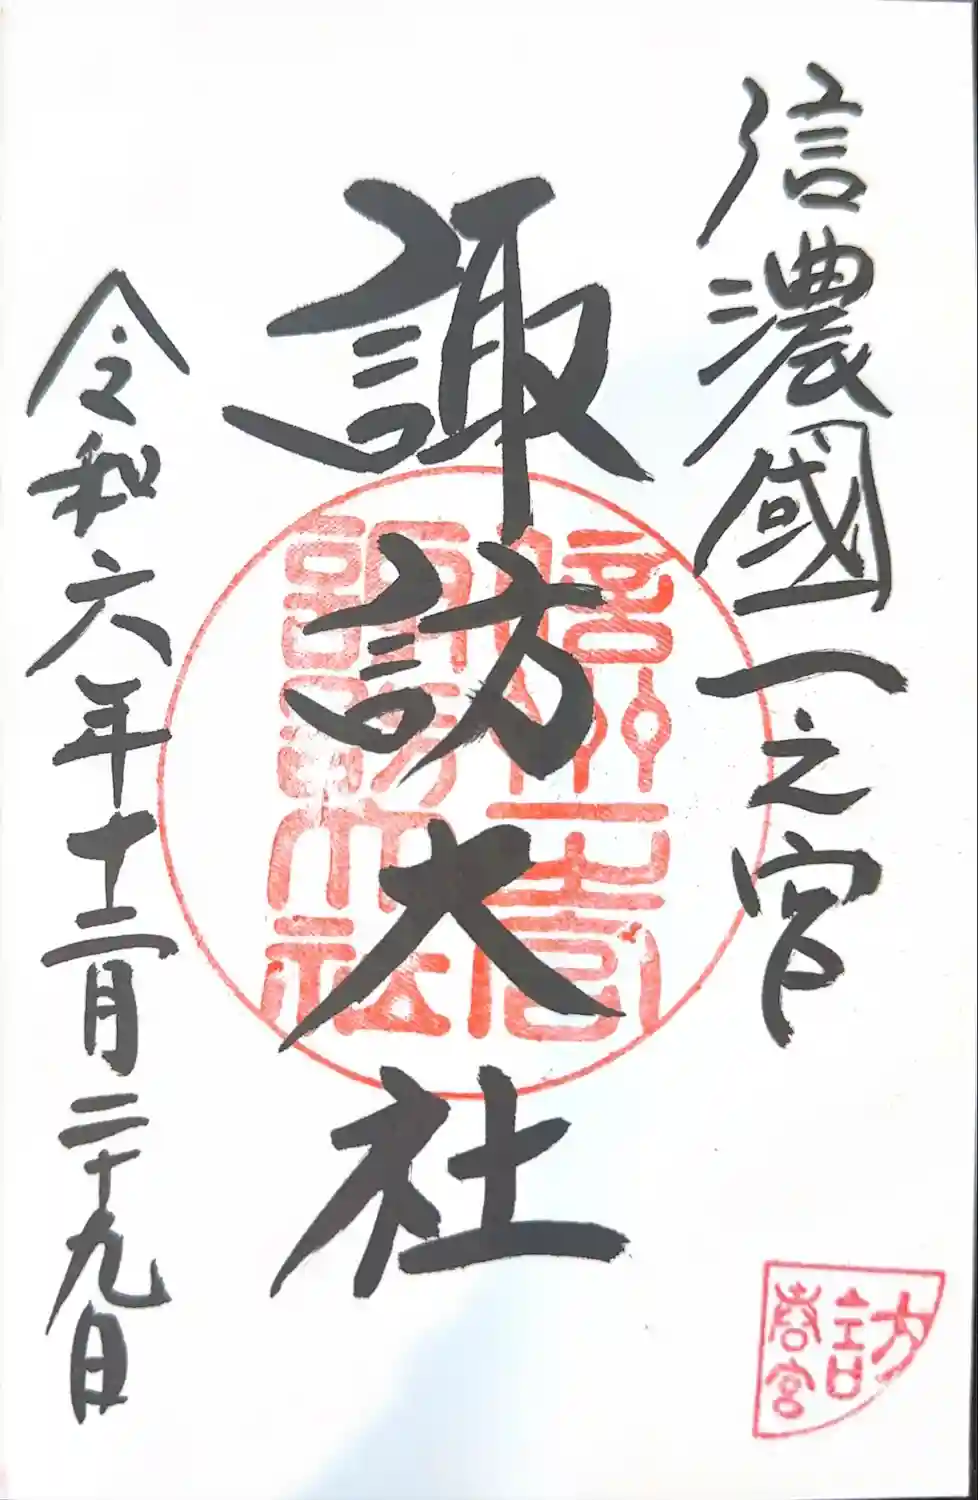 信濃國一之宮
諏訪大社
令和六年十二月二十九日
信州一之宮
諏訪大社
訪
春宮